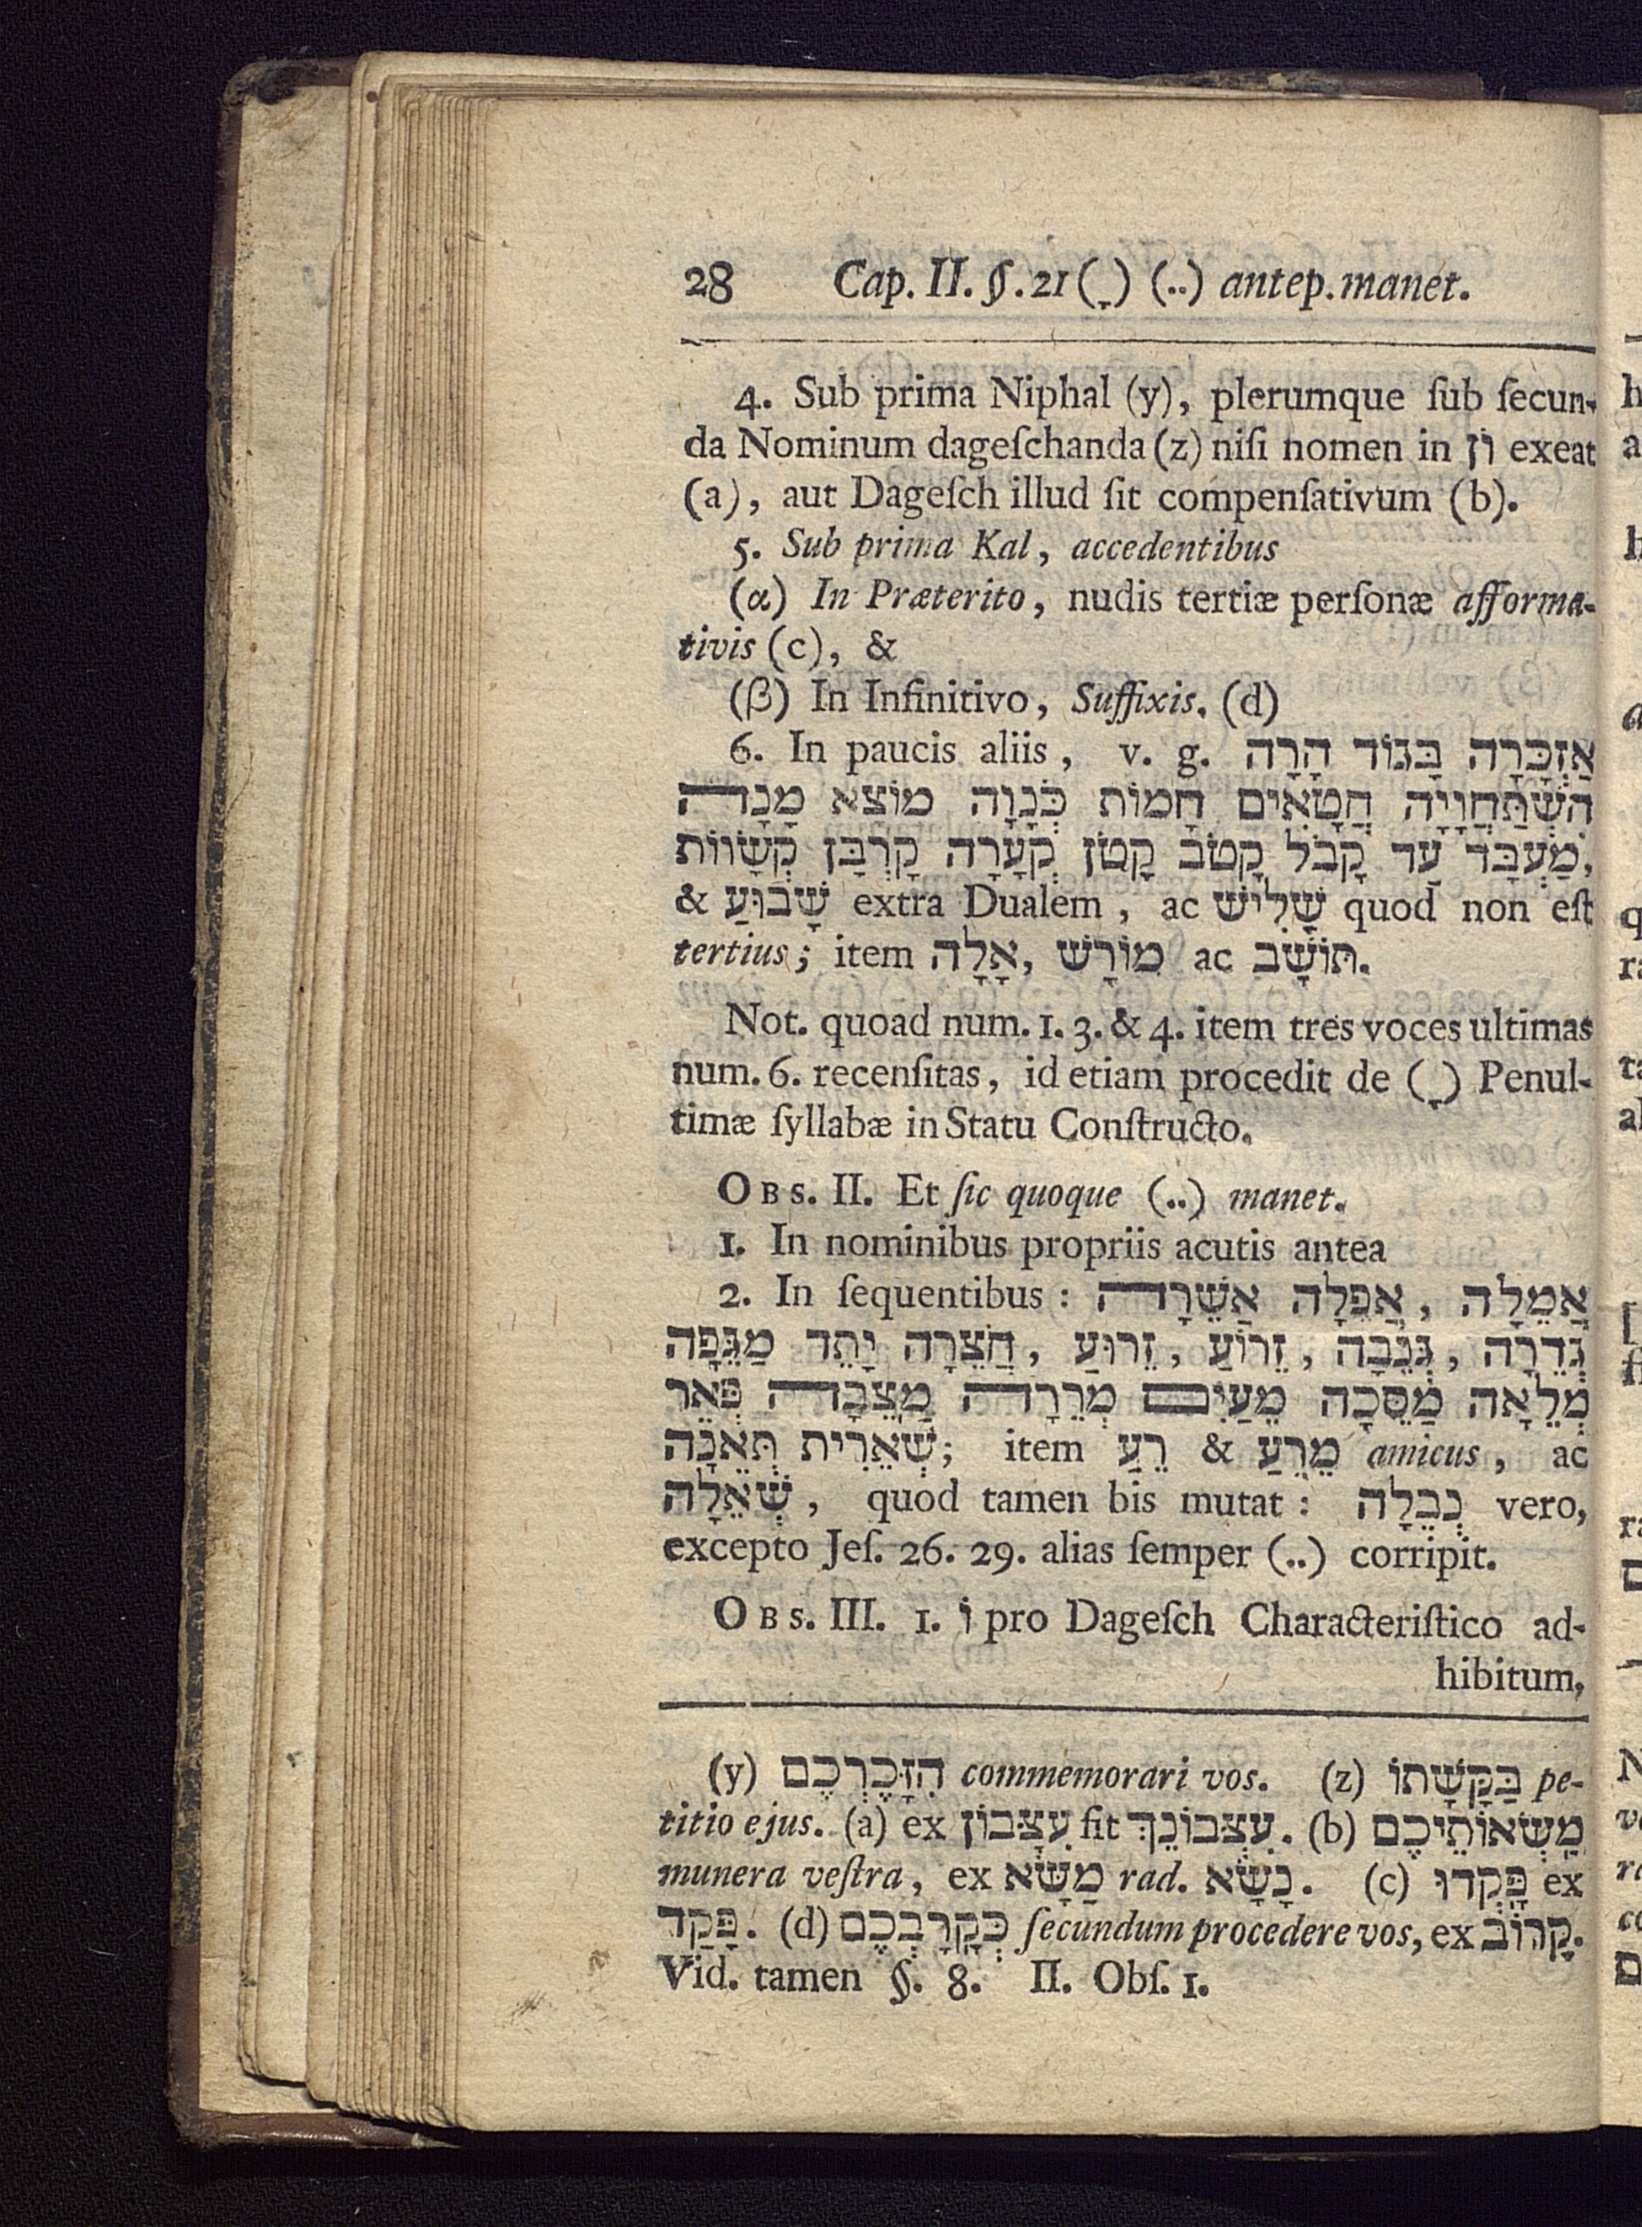 28 Cap. II. §. 21 (ָ) (..) antep. manet.
4. Sub prima Niphal (y), plerumque ſub ſecun-
da Nominum dageſchanda (z) niſi nomen in וֹן exeat
(a), aut Dageſch illud ſit compenſativum (b).
5. Sub prima Kal, accedentibus
(α) In Præterito, nudis tertiæ perſonæ afforma-
tivis (c), &
(β) In Infinitivo, Suffixis. (d)
6. In paucis aliis, v. g. אַזְכָּרָה בָּגוֹד הָרָה
הִשְׁתַּחֲוָיָה חֲטָאִים חָמוֹת כְּנָוָה מוֹצָא מָנָדה
מַעְבָּד עָד קָבֹל קָטֹב קָטֹן קְעָרָה קָרְבָּן קְשָׂווֹת,
& שָׁבוּעַ extra Dualem, ac שָׁלִישׁ quod non eſt
tertius; item אָלָה, מוֹרָשׁ ac תּוֹשָׁב.
Not. quoad num. 1. 3. & 4. item tres voces ultimas
num. 6. recenſitas, id etiam procedit de (ָ) Penul-
timæ ſyllabæ in Statu Conſtructo.
OBS. II. Et ſic quoque (..) manet.
1. In nominibus propriis acutis antea
2. In ſequentibus: אֲמֵלָה, אֲפֵלָה אֲשֵׁרָה
גְּדֵרָה, גְּנֵבָה, זֵרוֹעַ, זֵרוּעַ, חֲצֵרָה יָתֵד מַגֵּפָה
מְלֵאָה מַסֵּכָה מֵעַיִם מְרֵרָה מַצֵּבָה פְּאֵר
שְׁאֵרִית תְּאֵנָה; item רֵעַ & מֵרֵעַ amicus, ac
שְׁאֵלָה, quod tamen bis mutat: נְבֵלָה vero,
excepto Jeſ. 26. 29. alias ſemper (..) corripit.
OBS. III. 1. וֹ pro Dageſch Characteriſtico ad-
hibitum,
(y) הִזָּכֶרְכֶם commemorari vos. (z) בַּקָּשָׁתוֹ pe-
titio ejus. (a) ex עִצָּבוֹן fit עִצְּבוֹנֵךְ. (b) מַשְׂאוֹתֵיכֶם
munera veſtra, ex מַשָּׂא rad. נָשָׂא. (c) פָּקְדוּ ex
פָּקַד. (d) כְּקָרָבְכֶם ſecundum procedere vos, ex קָרוֹב.
Vid. tamen §. 8. II. Obſ. 1.